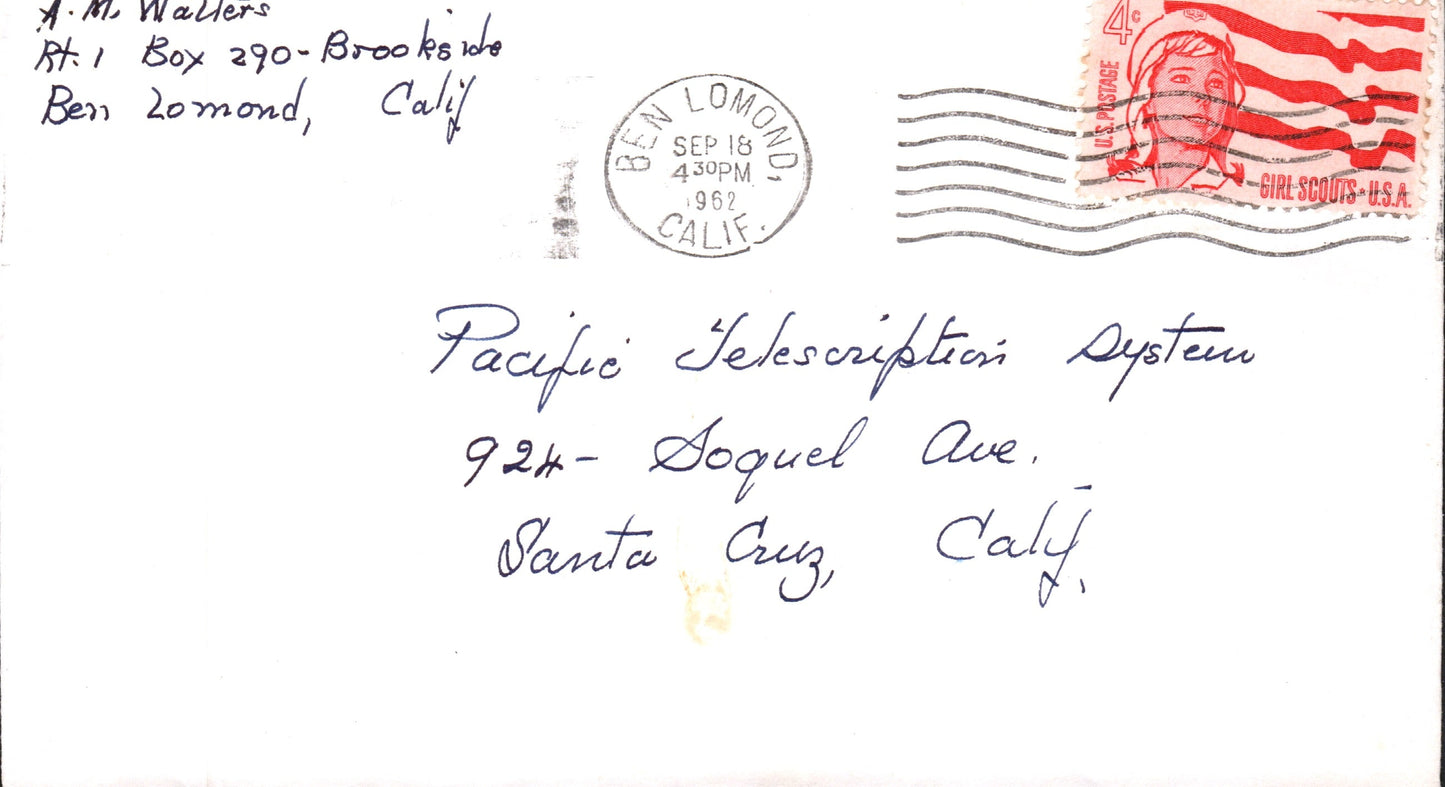 A. M. Walters
Rt. 1 Box 290 - Brookside
Ben Lomond, Calif
BEN LOMOND,
SEP 18
4 30 PM
1962
CALIF.
4c
U.S. POSTAGE
GIRL SCOUTS ★ U.S.A.
Pacific Telescription System
924 - Soquel Ave.
Santa Cruz, Calif.